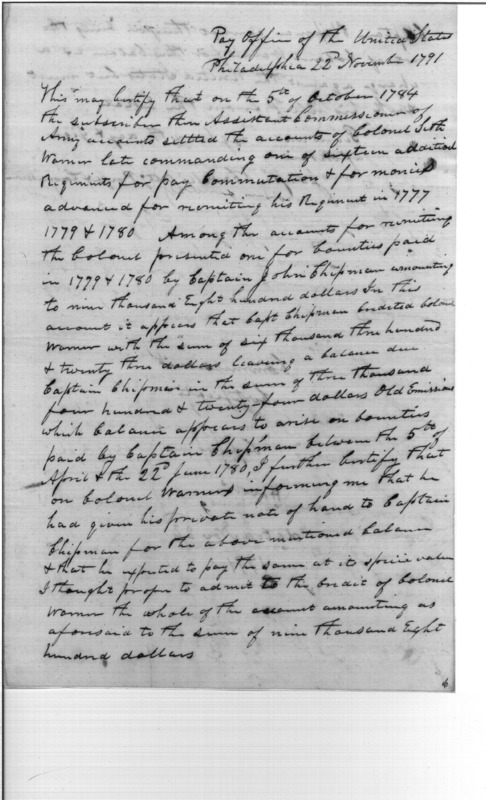 Pay Office of the United States
Philadelphia 22d November 1791
This may Certify that on the 5th of October 1784
the subscriber then Assistant Commissioner of
Army accounts settled the accounts of Colonel Seth
Warner late commanding one of sixteen additional
Regiments for pay Commutation & for monies
advanced for recruiting his Regiment in 1777
1779 & 1780 Among the accounts for recruiting
the Colonel presented one for bounties paid
in 1779 & 1780 by Captain John Chipman amounting
to nine thousand Eight hundred dollars In this
account it appears that Capt Chipman credited Colonel
Warner with the sum of six thousand three hundred
& twenty three dollars leaving a balance due
Captain Chipman in the sum of three thousand
four hundred & twenty-four dollars Old Emissions
which balance appears to arise on bounties
paid by Captain Chipman between the 5th of
April & the 22d June 1780, I further Certify that
on Colonel Warners informing me that he
had given his private note of hand to Captain
Chipman for the above mentioned balance
& that he expected to pay the same at its specie value
I thought proper to admit to the credit of Colonel
Warner the whole of the account amounting as
aforesaid to the sum of nine thousand Eight
hundred dollars